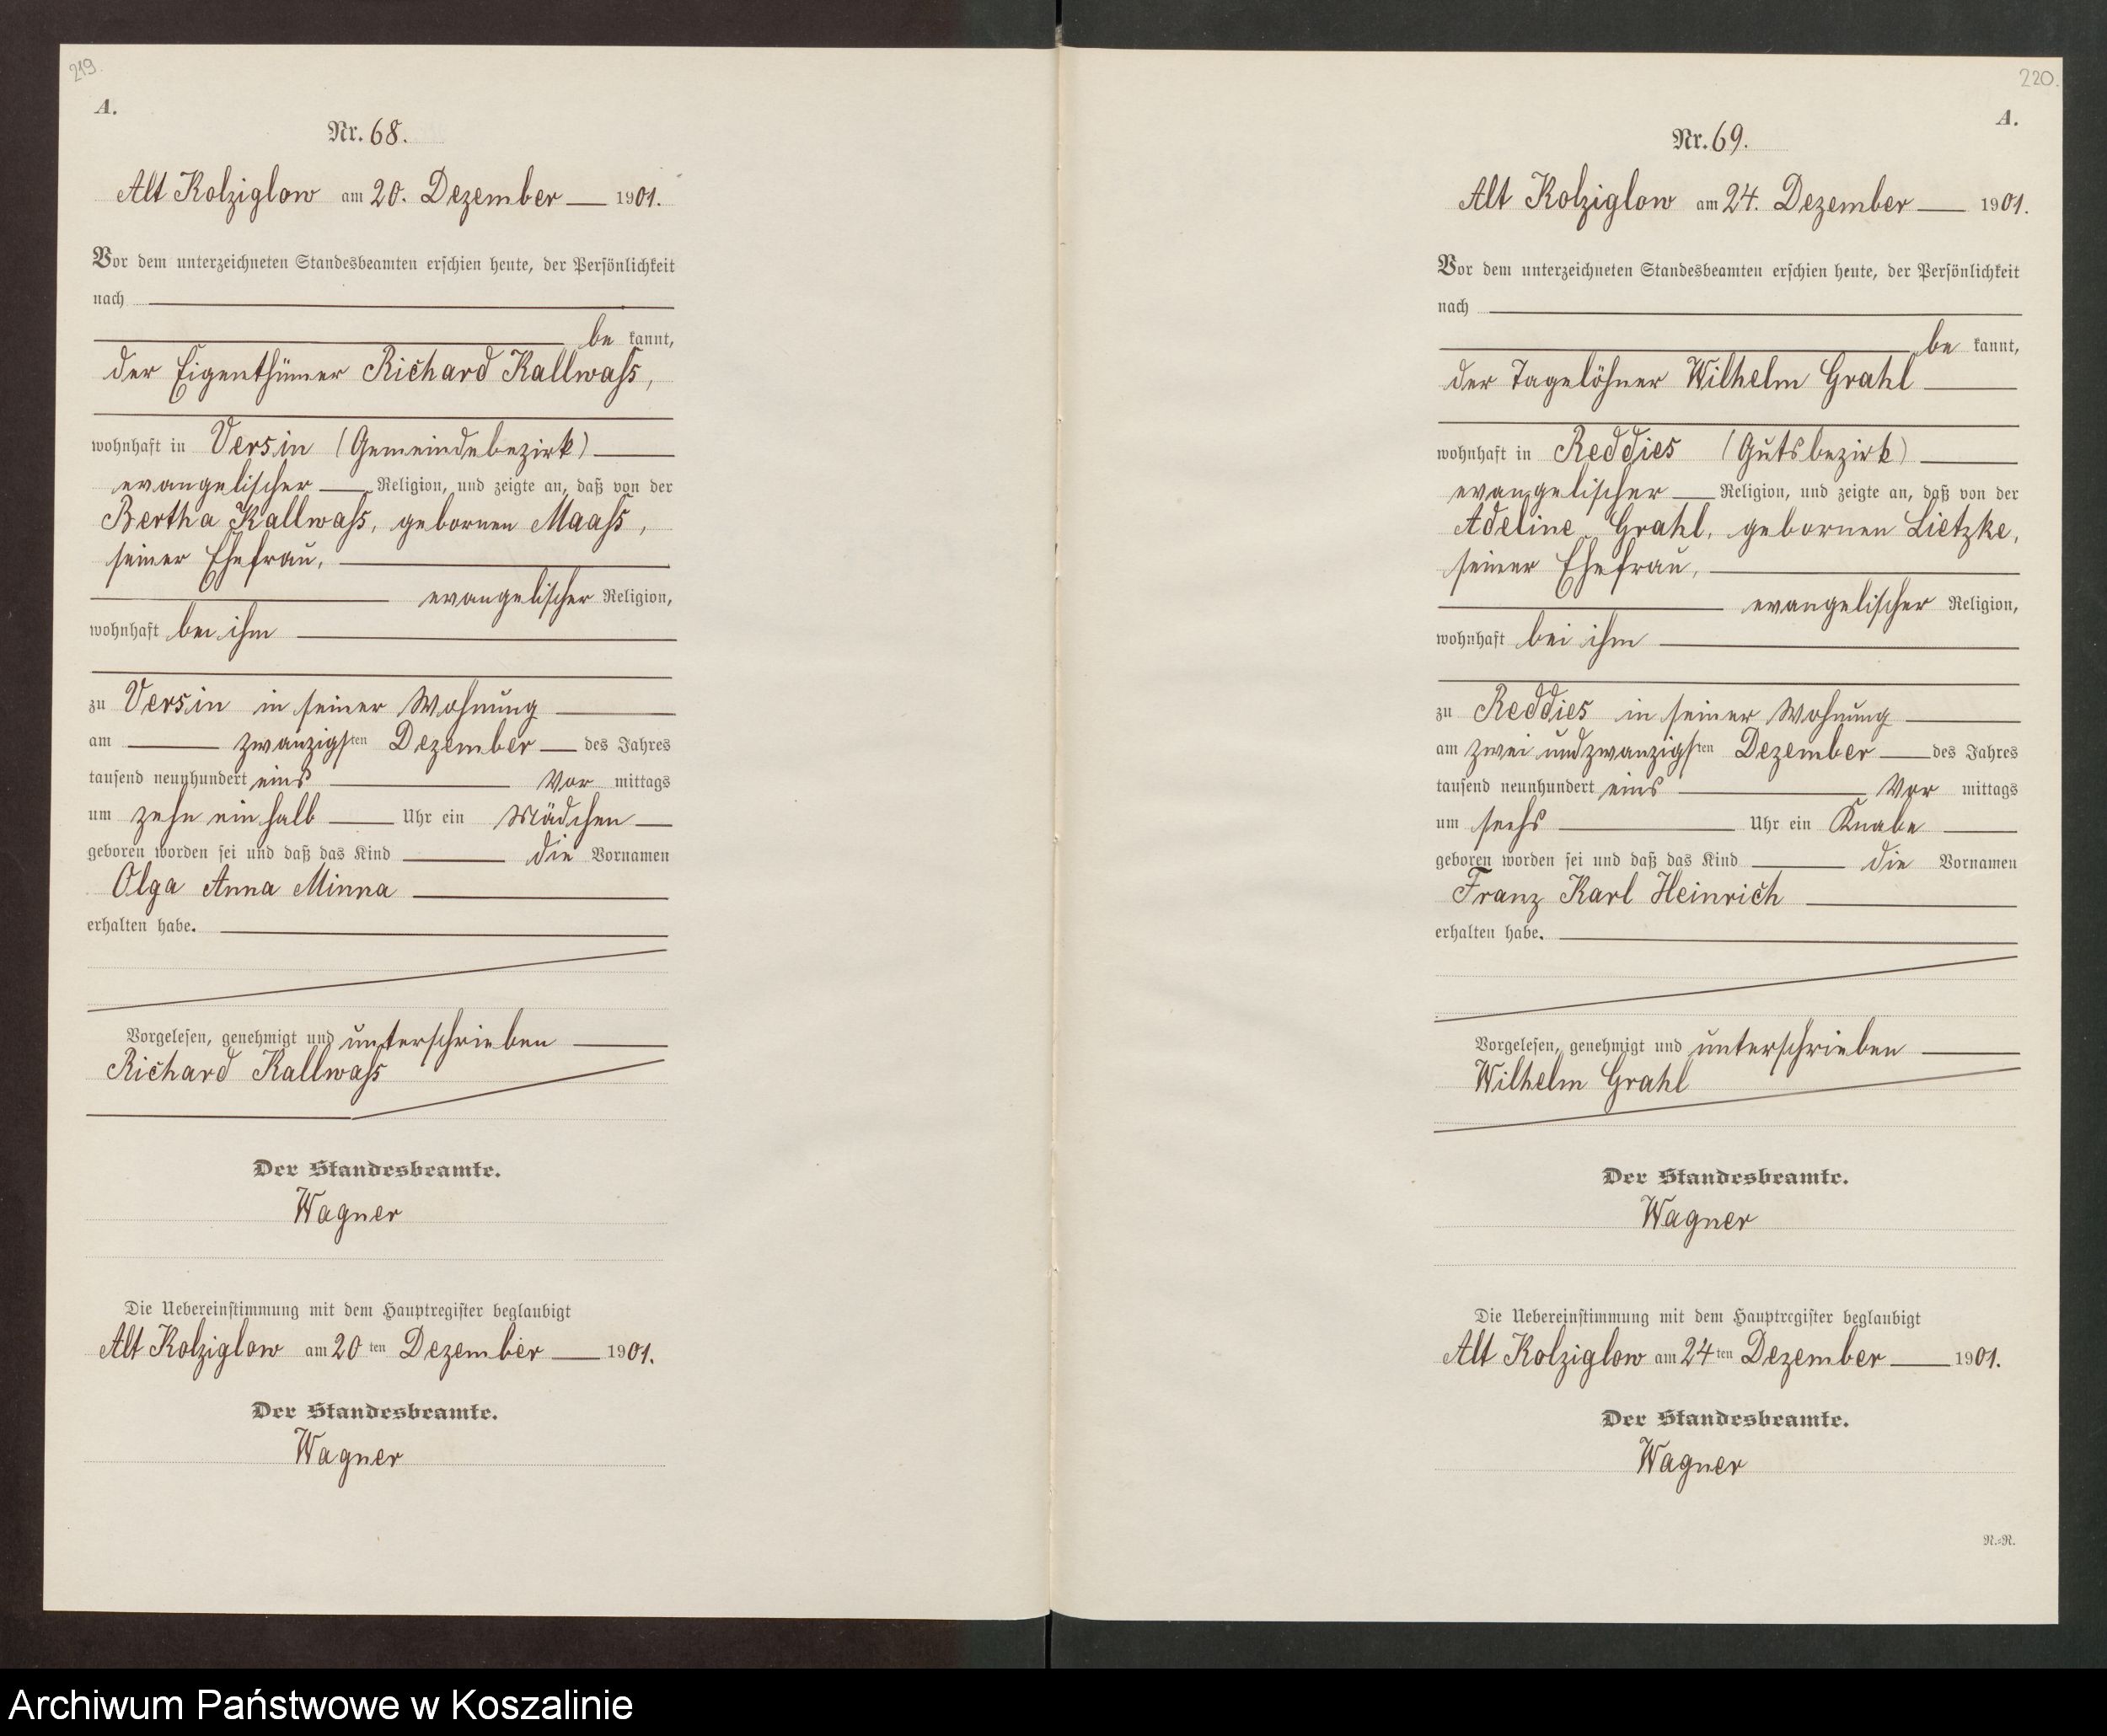 219.
A.
Nr. 68.
Alt Kolziglow am 20. Dezember 1901.
Vor dem unterzeichneten Standesbeamten erschien heute, der Persönlichkeit
nach
be kannt,
der Eigenthümer Richard Kallwaß,
wohnhaft in Versin (Gemeindebezirk)
evangelischer Religion, und zeigte an, daß von der
Bertha Kallwaß, gebornen Maaß,
seiner Ehefrau,
evangelischer Religion,
wohnhaft bei ihm
zu Versin in seiner Wohnung
am zwanzigsten Dezember des Jahres
tausend neunhundert eins Vor mittags
um zehn ein halb Uhr ein Mädchen
geboren worden sei und daß das Kind die Vornamen
Olga Anna Minna
erhalten habe.
Vorgelesen, genehmigt und unterschrieben
Richard Kallwaß
Der Standesbeamte.
Wagner
Die Uebereinstimmung mit dem Hauptregister beglaubigt
Alt Kolziglow am 20 ten Dezember 1901.
Der Standesbeamte.
Wagner
220.
A.
Nr. 69.
Alt Kolziglow am 24. Dezember 1901.
Vor dem unterzeichneten Standesbeamten erschien heute, der Persönlichkeit
nach
be kannt,
der Tagelöhner Wilhelm Grahl
wohnhaft in Reddies (Gutsbezirk)
evangelischer Religion, und zeigte an, daß von der
Adeline Grahl, gebornen Lietzke,
seiner Ehefrau,
evangelischer Religion,
wohnhaft bei ihm
zu Reddies in seiner Wohnung
am zwei und zwanzigsten Dezember des Jahres
tausend neunhundert eins Vor mittags
um sechs Uhr ein Knabe
geboren worden sei und daß das Kind die Vornamen
Franz Karl Heinrich
erhalten habe.
Vorgelesen, genehmigt und unterschrieben
Wilhelm Grahl
Der Standesbeamte.
Wagner
Die Uebereinstimmung mit dem Hauptregister beglaubigt
Alt Kolziglow am 24 ten Dezember 1901.
Der Standesbeamte.
Wagner
R.=R.
Archiwum Państwowe w Koszalinie